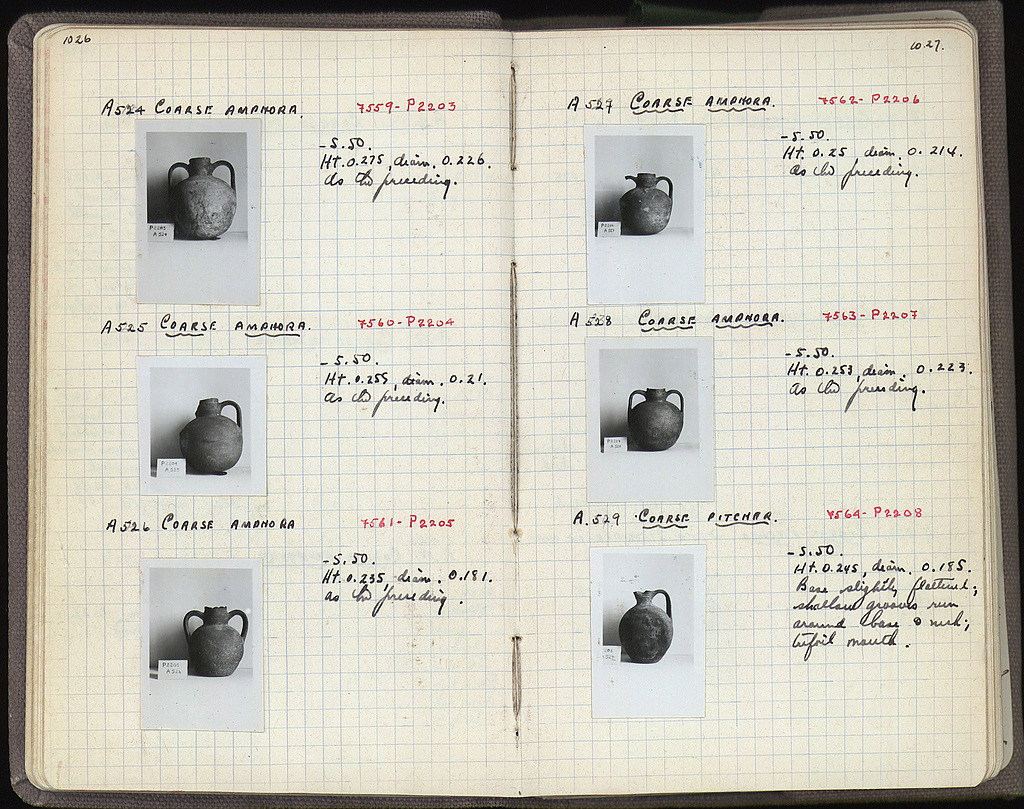 1026
A524 COARSE AMPHORA. 7559-P2203
-5.50.
Ht. 0.275, diam. 0.226.
As the preceding.
P2203
A524
A525 COARSE AMPHORA. 7560-P2204
-5.50.
Ht. 0.255, diam. 0.21.
As the preceding.
P2204
A525
A526 COARSE AMPHORA 7561-P2205
-5.50.
Ht. 0.235, diam. 0.181.
as the preceding.
P2205
A526
1027.
A527 COARSE AMPHORA. 7562-P2206
-5.50.
Ht. 0.25, diam. 0.214.
As the preceding.
P2206
A527
A528 COARSE AMPHORA. 7563-P2207
-5.50.
Ht. 0.253, diam. 0.223.
As the preceding.
P2207
A528
A.529 COARSE PITCHER. 7564-P2208
-5.50.
Ht. 0.245, diam. 0.185.
Base slightly flattened;
shallow grooves run
around base & neck;
trefoil mouth.